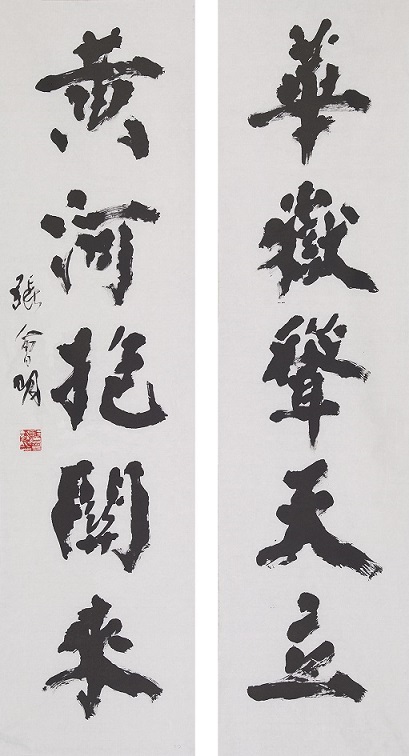 華嶽聳天立
黄河抱關來
張會明